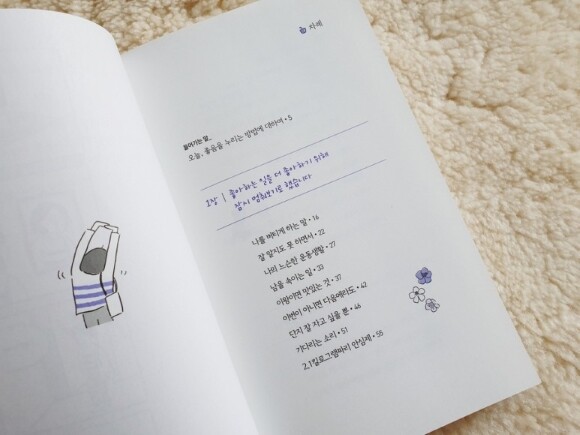 차례
들어가는 말_
오늘, 좋음을 누리는 방법에 대하여 • 5
1장 | 좋아하는 일을 더 좋아하기 위해
잠시 멈춰보기로 했습니다
나를 버티게 하는 말 • 16
잘 알지도 못 하면서 • 22
나의 느슨한 운동생활 • 27
남을 속이는 일 • 33
이왕이면 맛있는 것 • 37
이번이 아니면 다음에라도 • 42
단지 잘 자고 싶을 뿐 • 46
기다리는 소리 • 51
2.1킬로그램짜리 안심제 • 55